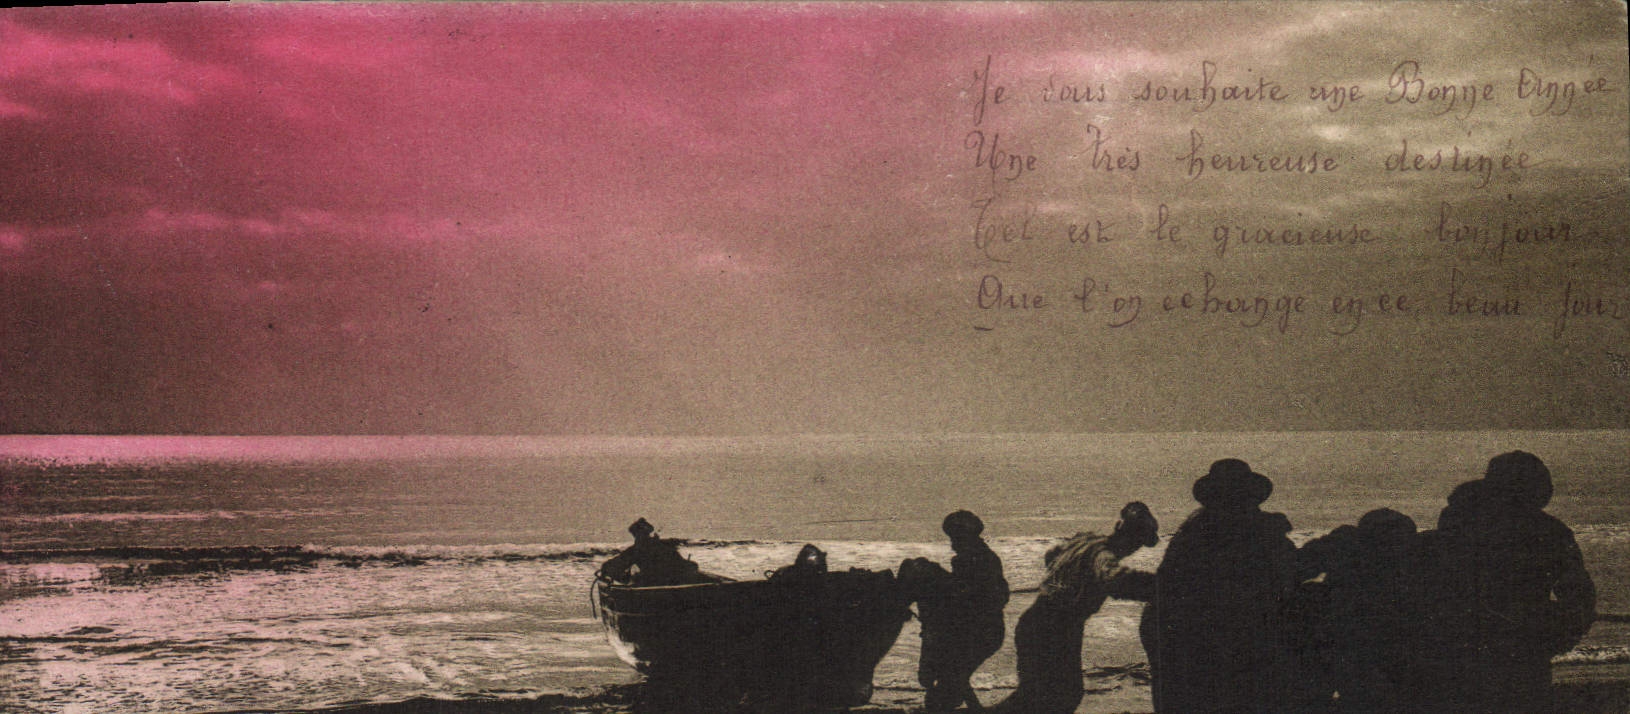 Je vous souhaite une Bonne Année
Une très heureuse destinée
Tel est le gracieuse bonjour
Que l'on echange en ce, beau jour